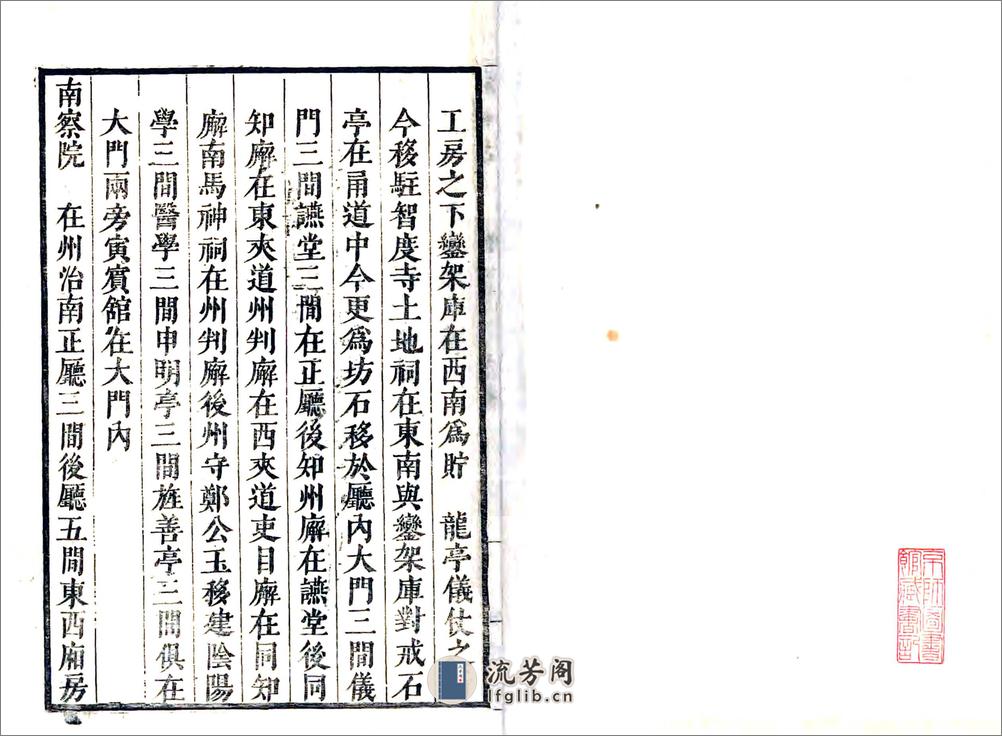 工房之下鑾架庫在西南爲貯　龍亭儀仗之
今移駐智度寺土地祠在東南與鑾架庫對戒石
亭在甬道中今更爲坊石移於廳內大門三間儀
門三間讌堂三間在正廳後知州廨在讌堂後同
知廨在東夾道州判廨在西夾道吏目廨在同知
廨南馬神祠在州判廨後州守鄭公玉移建陰陽
學三間醫學三間申明亭三間旌善亭三間俱在
大門兩旁寅賓館在大門內
南察院　在州治南正廳三間後廳五間東西廂房
京師圖書
館藏書記
流芳阁
lfglib.cn